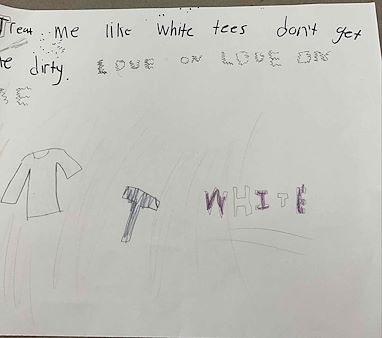 Treat me like white tees don't get
me dirty. LOVE ON LOVE ON
ME
T WHITE